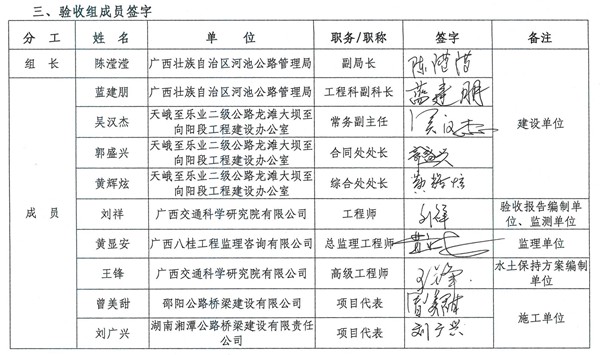 三、验收组成员签字
分 工 姓 名 单 位 职务/职称 签字 备注
组 长 陈滢滢 广西壮族自治区河池公路管理局 副局长 陈滢滢
建设单位
成 员
蓝建朋 广西壮族自治区河池公路管理局 工程科副科长 蓝建朋
吴汉杰 天峨至乐业二级公路龙滩大坝至
向阳段工程建设办公室 常务副主任 吴汉杰
郭盛兴 天峨至乐业二级公路龙滩大坝至
向阳段工程建设办公室 合同处处长 郭盛兴
黄辉炫 天峨至乐业二级公路龙滩大坝至
向阳段工程建设办公室 综合处处长 黄辉炫
刘祥 广西交通科学研究院有限公司 工程师 刘祥 验收报告编制单
位、监测单位
黄显安 广西八桂工程监理咨询有限公司 总监理工程师 监理单位
王锋 广西交通科学研究院有限公司 高级工程师 王锋 水土保持方案编制
单位
曾美甜 邵阳公路桥梁建设有限公司 项目代表
施工单位
刘广兴 湖南湘潭公路桥梁建设有限责任
公司 项目代表 刘广兴